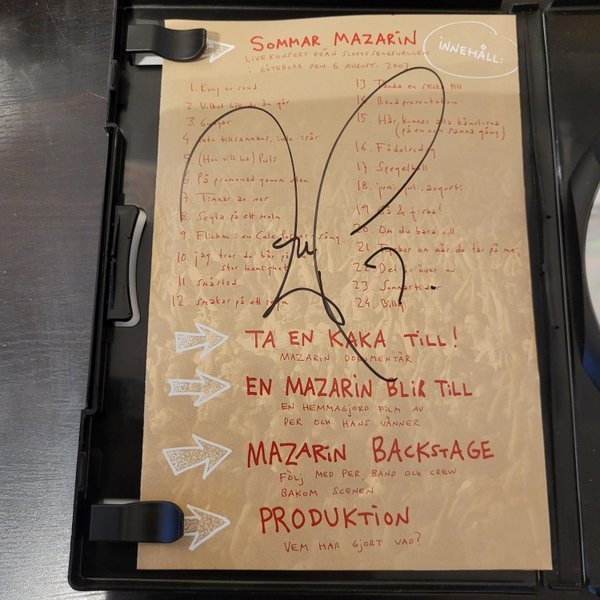 SOMMAR MAZARIN
LIVEKONSERT FRÅN SLOTTSSKOGSVALLEN
I GÖTEBORG DEN 6 AUGUSTI 2007
INNEHÅLL:
1. Kung av sand
2.
3. Gungar
4. inte tillsammans, inte isär
5. (Hon vill ha) Puls
6. På promenad genom stan
7. Timmar av iver
8. Segla på ett moln
9. Flickan i en Cole Porter-sång
10. jag tror du bär på en
stor hemlighet
11. småstad
12. smakar på ett regn
13. Tända en sticka till
14. Bandpresentation
15. Här kommer alla känslorna
(på en och samma gång)
16. Födelsedag
17. Spegelboll
18. juni, juli, augusti
19. Gå & fiska!
20. Om du bara vill
21. Tycker om när du tar på mej
22. Det är över nu
23. Sommartider
24. Billy
TA EN KAKA TILL!
MAZARIN DOKUMENTÄR
EN MAZARIN BLIR TILL
EN HEMMAGJORD FILM AV
PER OCH HANS VÄNNER
MAZARIN BACKSTAGE
FÖLJ MED PER, BAND OCH CREW
BAKOM SCENEN
PRODUKTION
VEM HAR GJORT VAD?